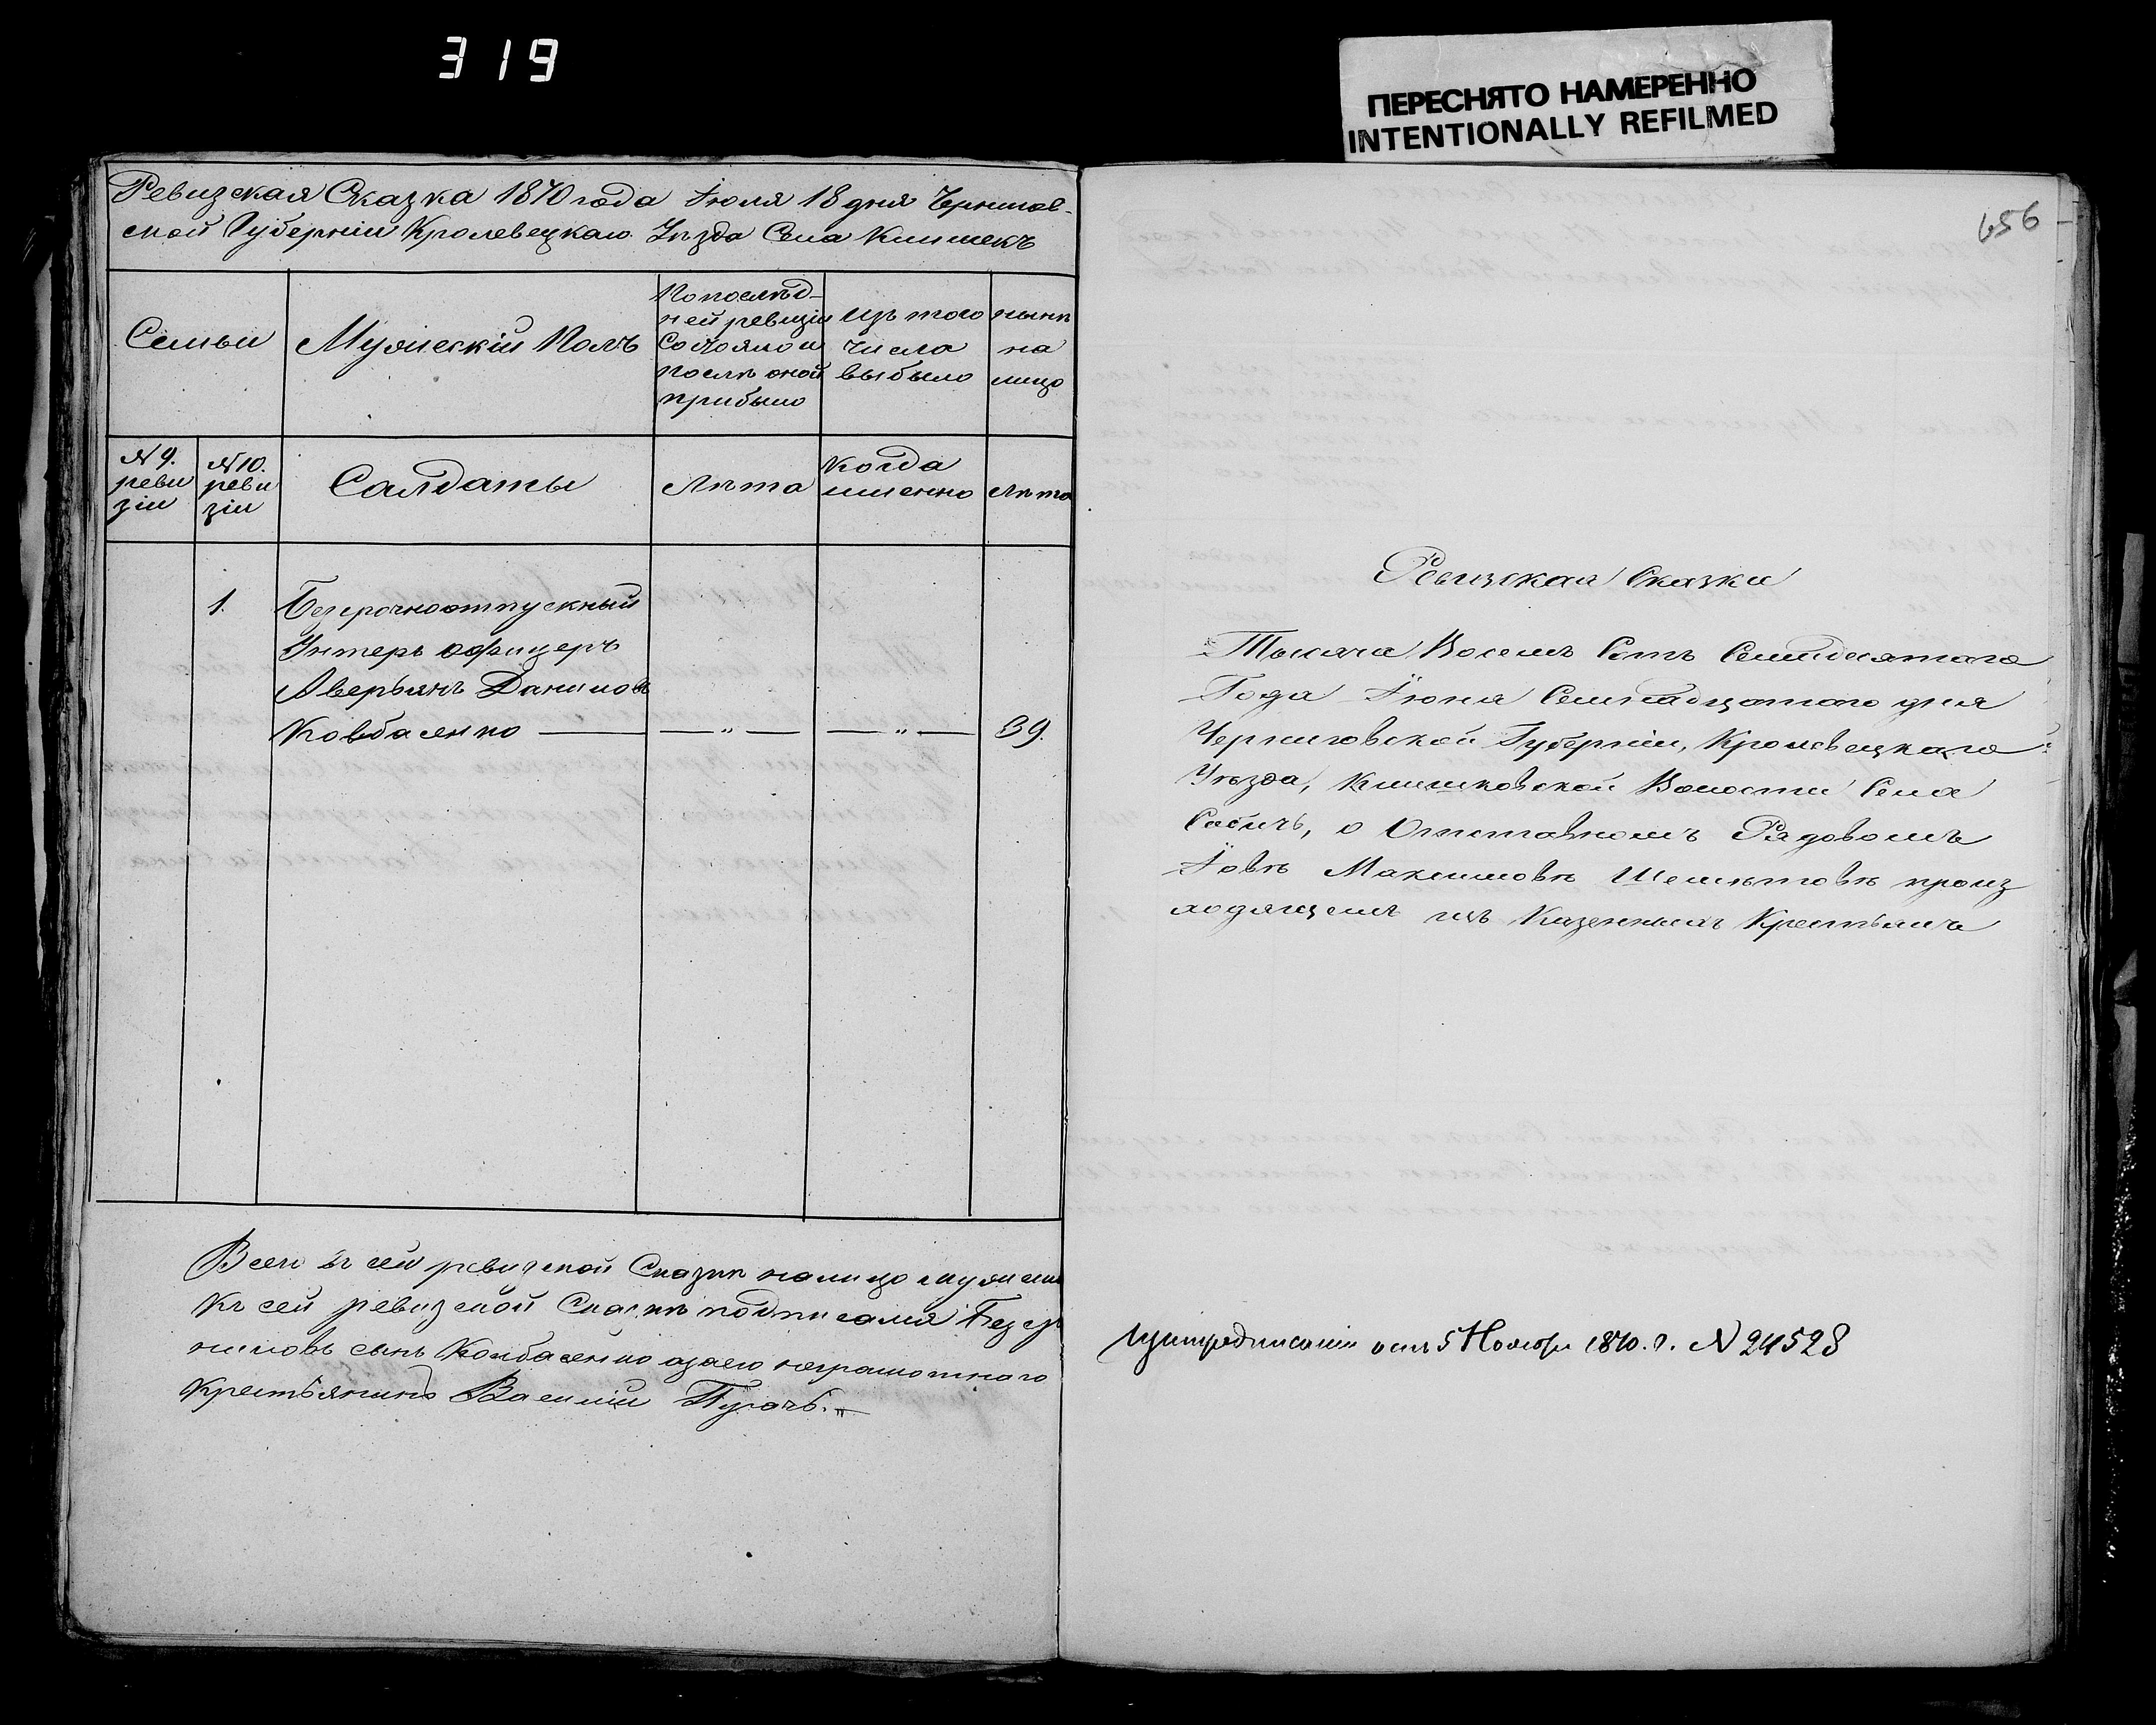 319
ПЕРЕСНЯТО НАМЕРЕННО
INTENTIONALLY REFILMED
Ревизская Сказка 1870 года Іюля 18 дня Чернигов-
ской Губерніи Кролевецкаго Уѣзда Села Клишекъ
Семьи
Мужескій Полъ
По послѣд-
ней ревизіи
Состояло и
послѣ оной
прибыло
Изъ того
числа
выбыло
нынѣ
на
лицо
№ 9.
реви
зіи
№ 10.
реви
зіи
Салдаты
Лѣта
Когда
именно
Лѣта
1.
Безсрочноотпускный
Унтеръ офицеръ
Аверьянъ Даниловъ
Ковбасенко — — „ — — „ — 39.
Всего въ сей ревизской Сказкѣ налицо мужеск
Къ сей ревизской Сказкѣ подписался Безср
ниловъ сынъ Колбасенко азаего неграмотнаго
Крестьянинъ Василій Пугачъ.
656
Ревизская Сказка
Тысяча Восемъ Сотъ Семидесятаго
Года Іюня Семнадцатаго дня
Черниговской Губерніи, Кролевецкаго
Уѣзда, Клишковской Волости Села
Собичъ, о Отставномъ Рядовомъ
Іовѣ Максимовѣ Шеметовѣ произ
ходящемъ изъ Казенныхъ Крестьянъ
При предписаніи отъ 5 Ноября 1870. г. № 24528